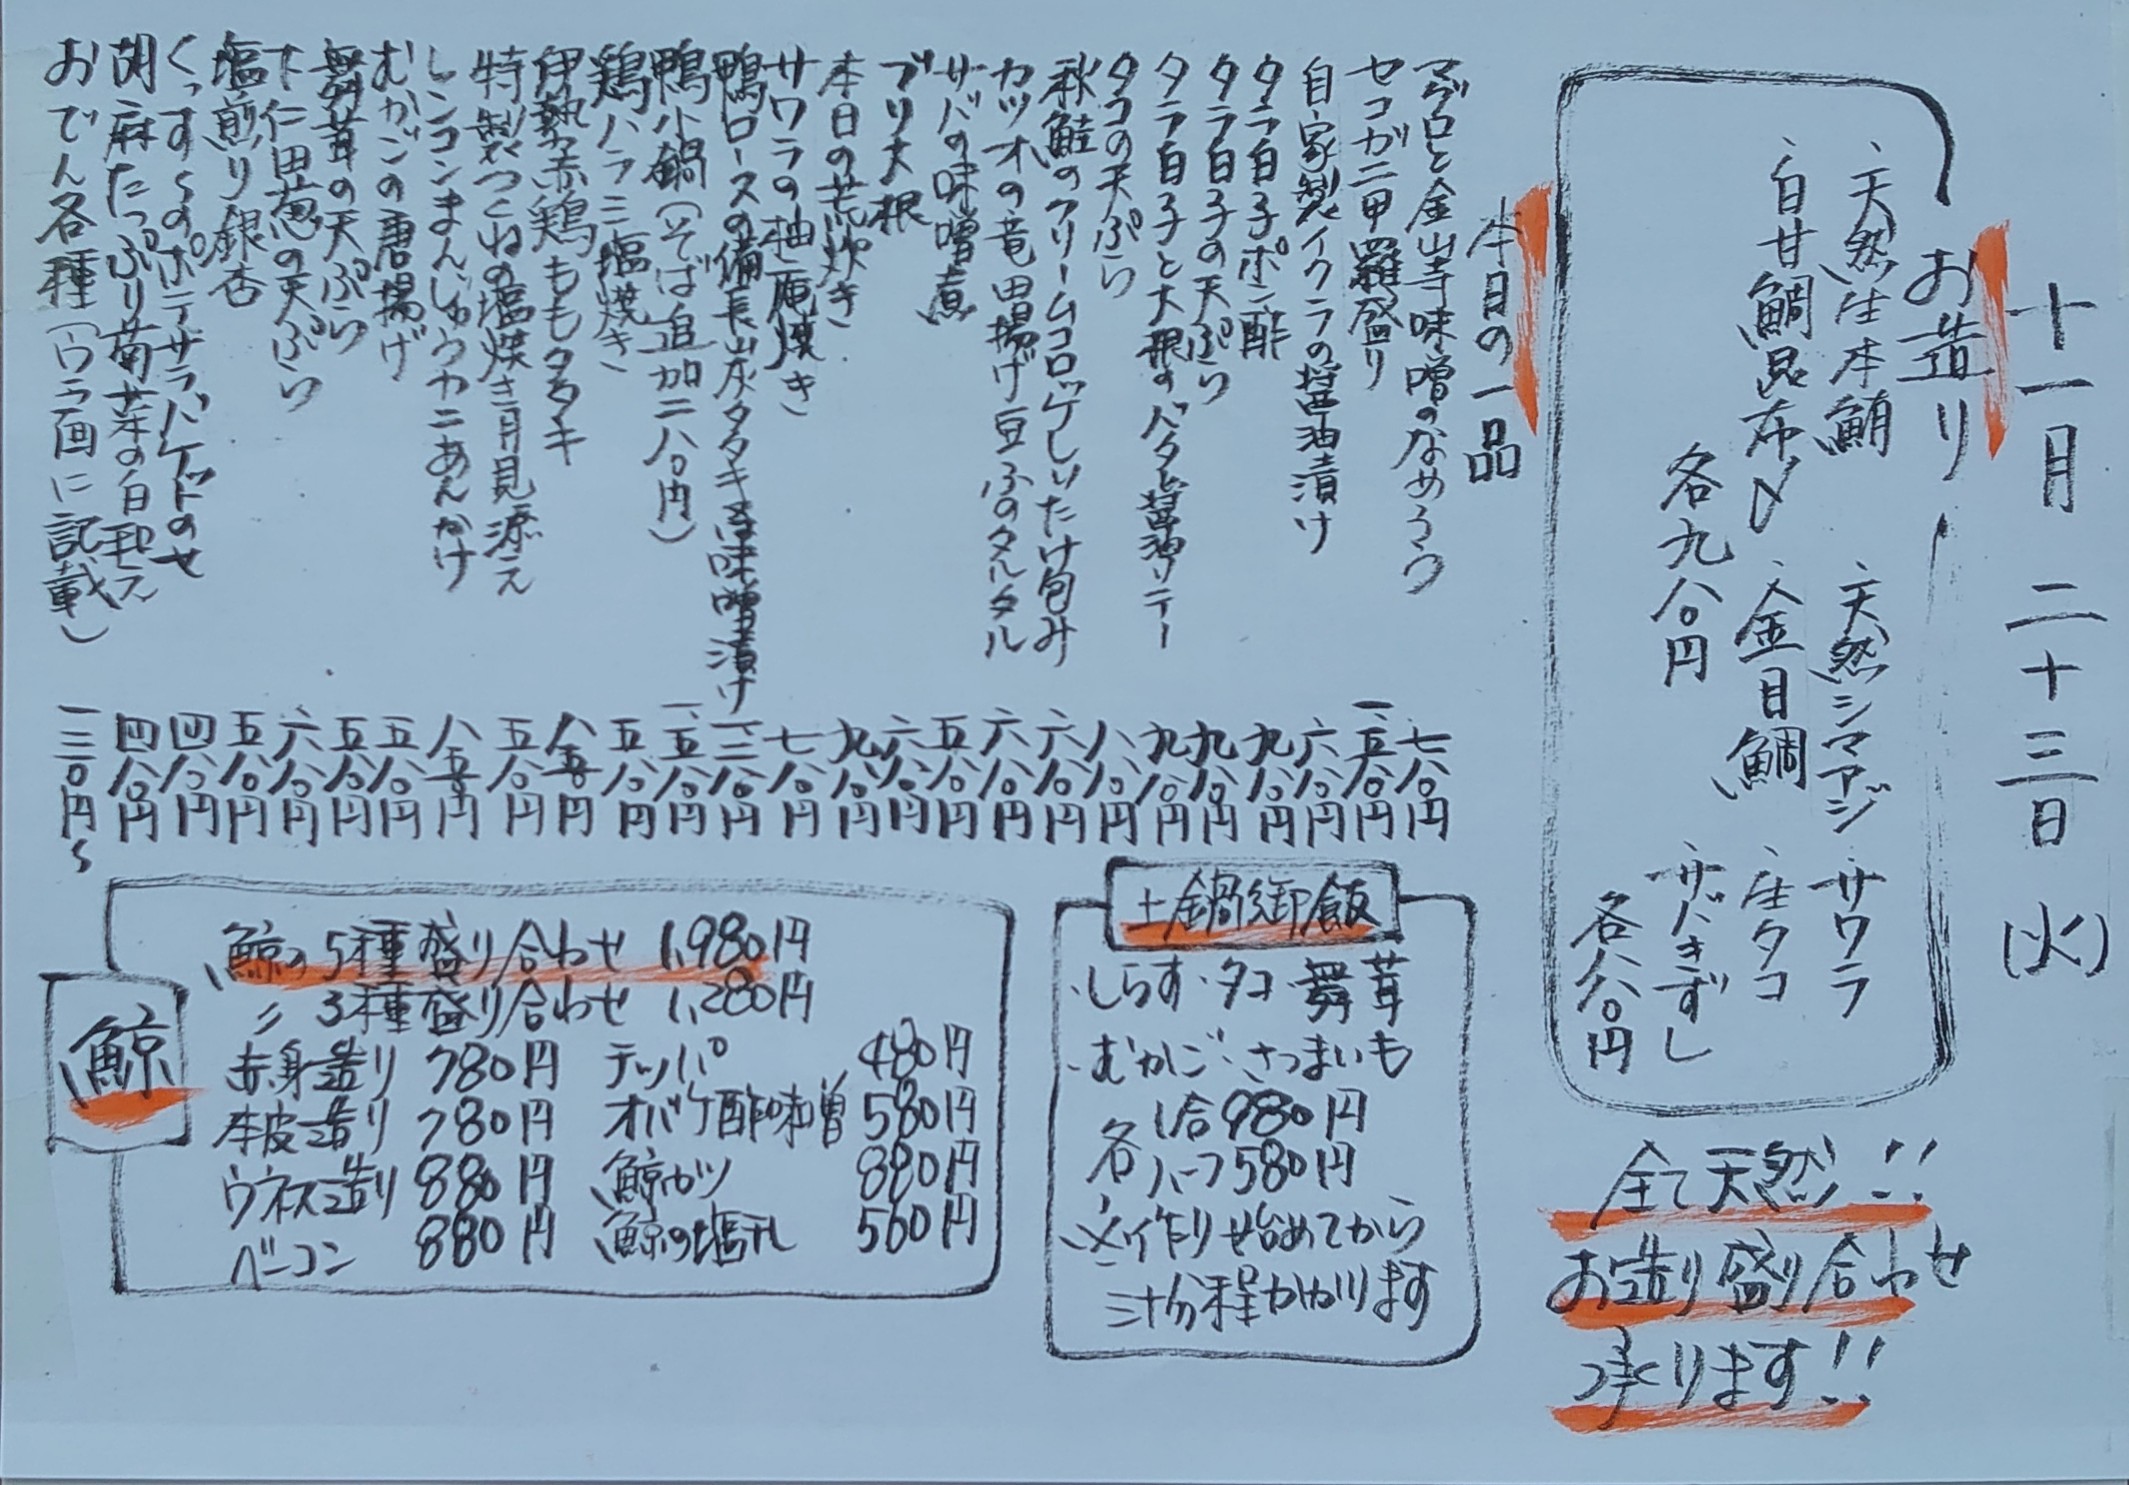 十一月 二十三日 (火)
お造り
・天然生本鮪 ・天然シマアジ ・サワラ
・白甘鯛昆布〆 ・金目鯛 ・生タコ
各九八〇円 ・サバきずし
各八八〇円
全て天然!!
お造り盛り合わせ
承ります!!
本日の一品
マグロと金山寺味噌のなめろう 七八〇円
セコガニ甲羅盛り 一、五八〇円
自家製イクラの醤油漬け 六八〇円
タラ白子ポン酢 九八〇円
タラ白子の天ぷら 九八〇円
タラ白子と大根のバター醤油ソテー 九八〇円
タコの天ぷら 八八〇円
秋鮭のクリームコロッケしいたけ包み 六八〇円
カツオの竜田揚げ豆ふのタルタル 六八〇円
サバの味噌煮 五八〇円
ブリ大根 六八〇円
本日の荒炊き 九八〇円
サワラの柚庵焼き 七八〇円
鴨ロースの備長炭タタキ 味噌漬け 一、二八〇円
鴨小鍋(そば追加二八〇円) 一、五八〇円
鶏ハラミ塩焼き 五八〇円
伊勢赤鶏ももタタキ 八五〇円
特製つくねの塩焼き月見添え 五八〇円
レンコンまんじゅうカニあんかけ 八五〇円
むかごの唐揚げ 五八〇円
舞茸の天ぷら 五八〇円
下仁田葱の天ぷら 六八〇円
塩煎り銀杏 五八〇円
くっす〜のポテサラバケットのせ 四八〇円
胡麻たっぷり菊菜の白和え 四八〇円
おでん各種(ウラ面に記載) 一三〇円〜
土鍋御飯
・しらす・タコ・舞茸
・むかご・さつまいも
各1合980円
各ハーフ580円
※作り始めてから
三十分程かかります
鯨
鯨の5種盛り合わせ 1,980円
〃 3種盛り合わせ 1,280円
赤身造り 780円 テッパ 480円
本皮造り 780円 オバケ酢味噌 580円
ウネス造り 880円 鯨カツ 880円
ベーコン 880円 鯨の塩タレ 560円